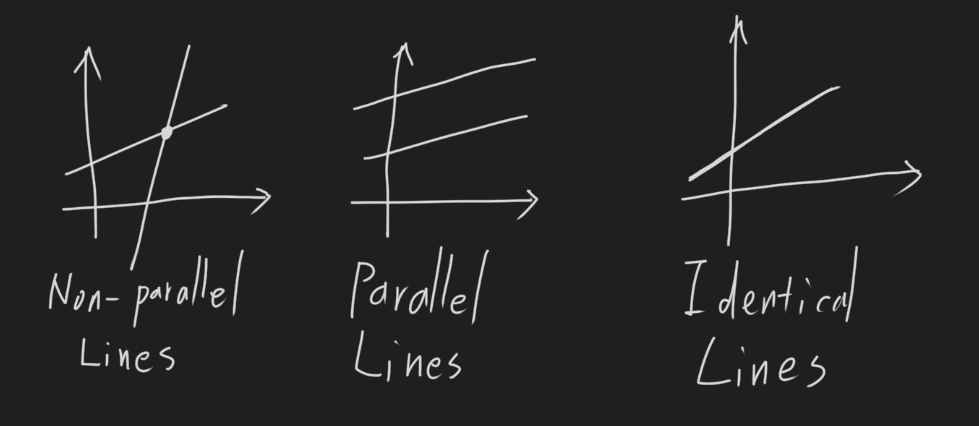 Non-parallel
Lines
Parallel
Lines
Identical
Lines